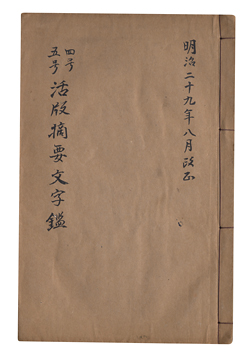 明治二十九年八月改正
四号
五号
活版摘要文字鑑